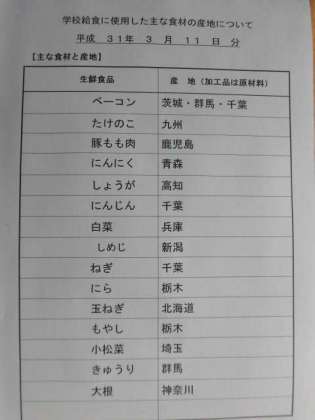 学校給食に使用した主な食材の産地について
平成 31年 3 月 11 日 分
【主な食材と産地】
生鮮食品 産 地（加工品は原材料）
ベーコン 茨城・群馬・千葉
たけのこ 九州
豚もも肉 鹿児島
にんにく 青森
しょうが 高知
にんじん 千葉
白菜 兵庫
しめじ 新潟
ねぎ 千葉
にら 栃木
玉ねぎ 北海道
もやし 栃木
小松菜 埼玉
きゅうり 群馬
大根 神奈川